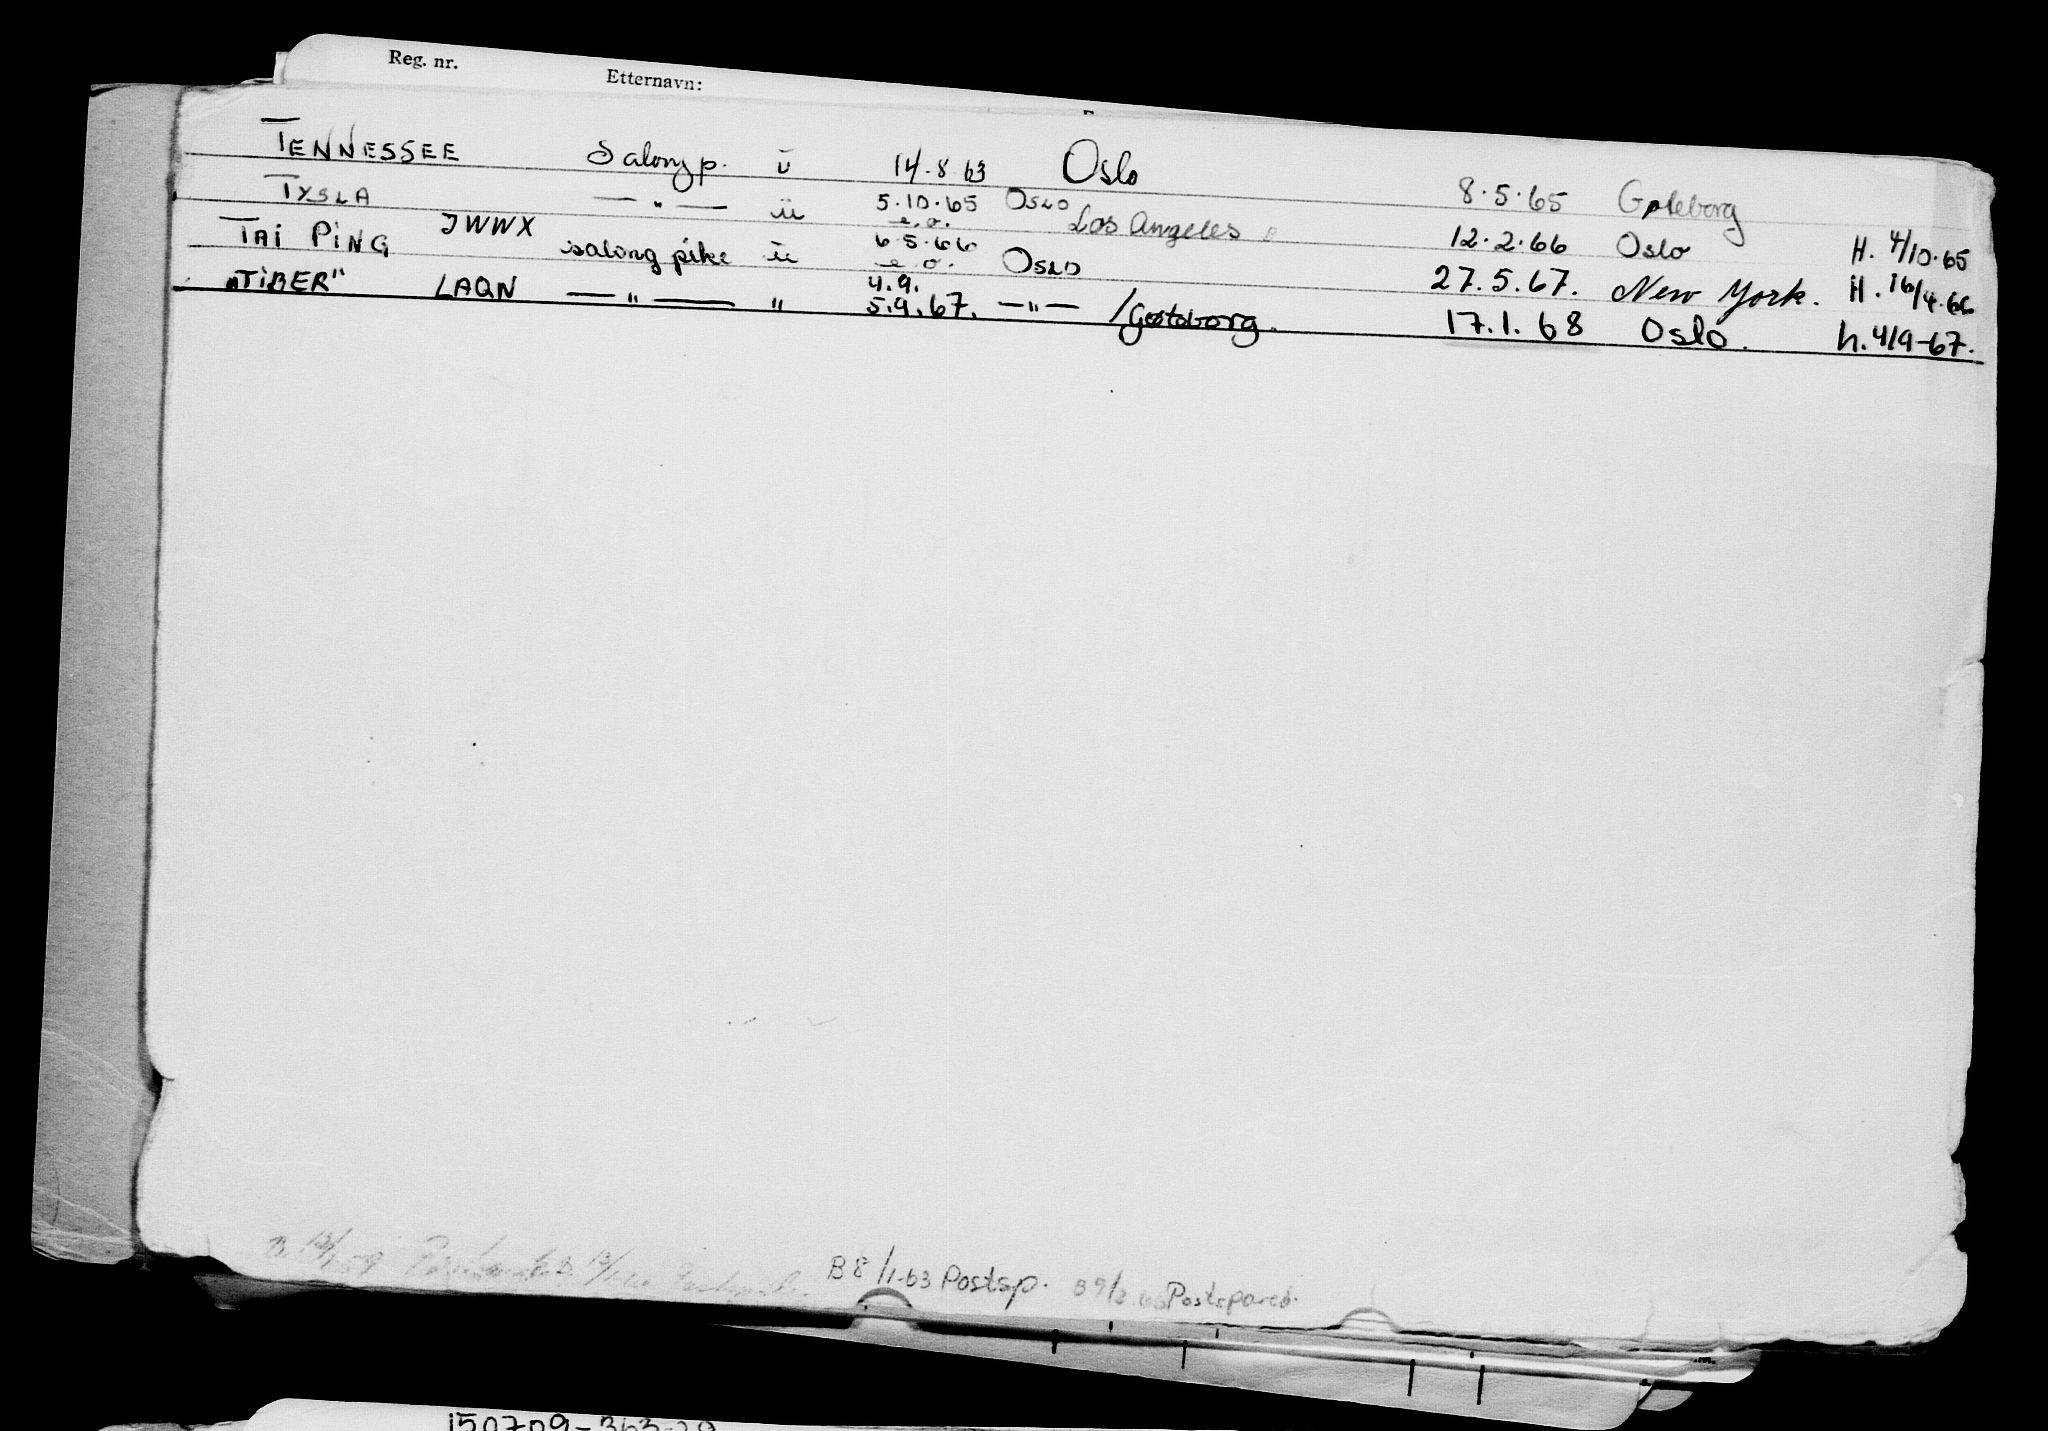 Reg. nr. Etternavn:
TENNESSEE Salong p. ü 14.8.63 Oslo 8.5.65 Gøteborg
TYSLA — " — ü 5.10.65 e.o. OSLO Los Angeles 12.2.66 Oslo H. 4/10.65
TAI PING JWWX salong pike ü 6.5.66 e.o. OSLO 27.5.67. New York. H. 16/4.66
"TIBER" LAQN — " — " 4.9. 5.9.67. — " — /Gøteborg. 17.1.68 Oslo. h. 4/9-67.
B 8/1-63 Postsp. B 9/3 Postspareb.
150709-363-29